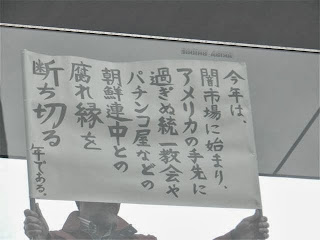 今年は、
闇市場に始まり、
アメリカの手先に
過ぎぬ統一教会や
パチンコ屋などの
朝鮮連中との
腐れ縁を
断ち切る
年である。